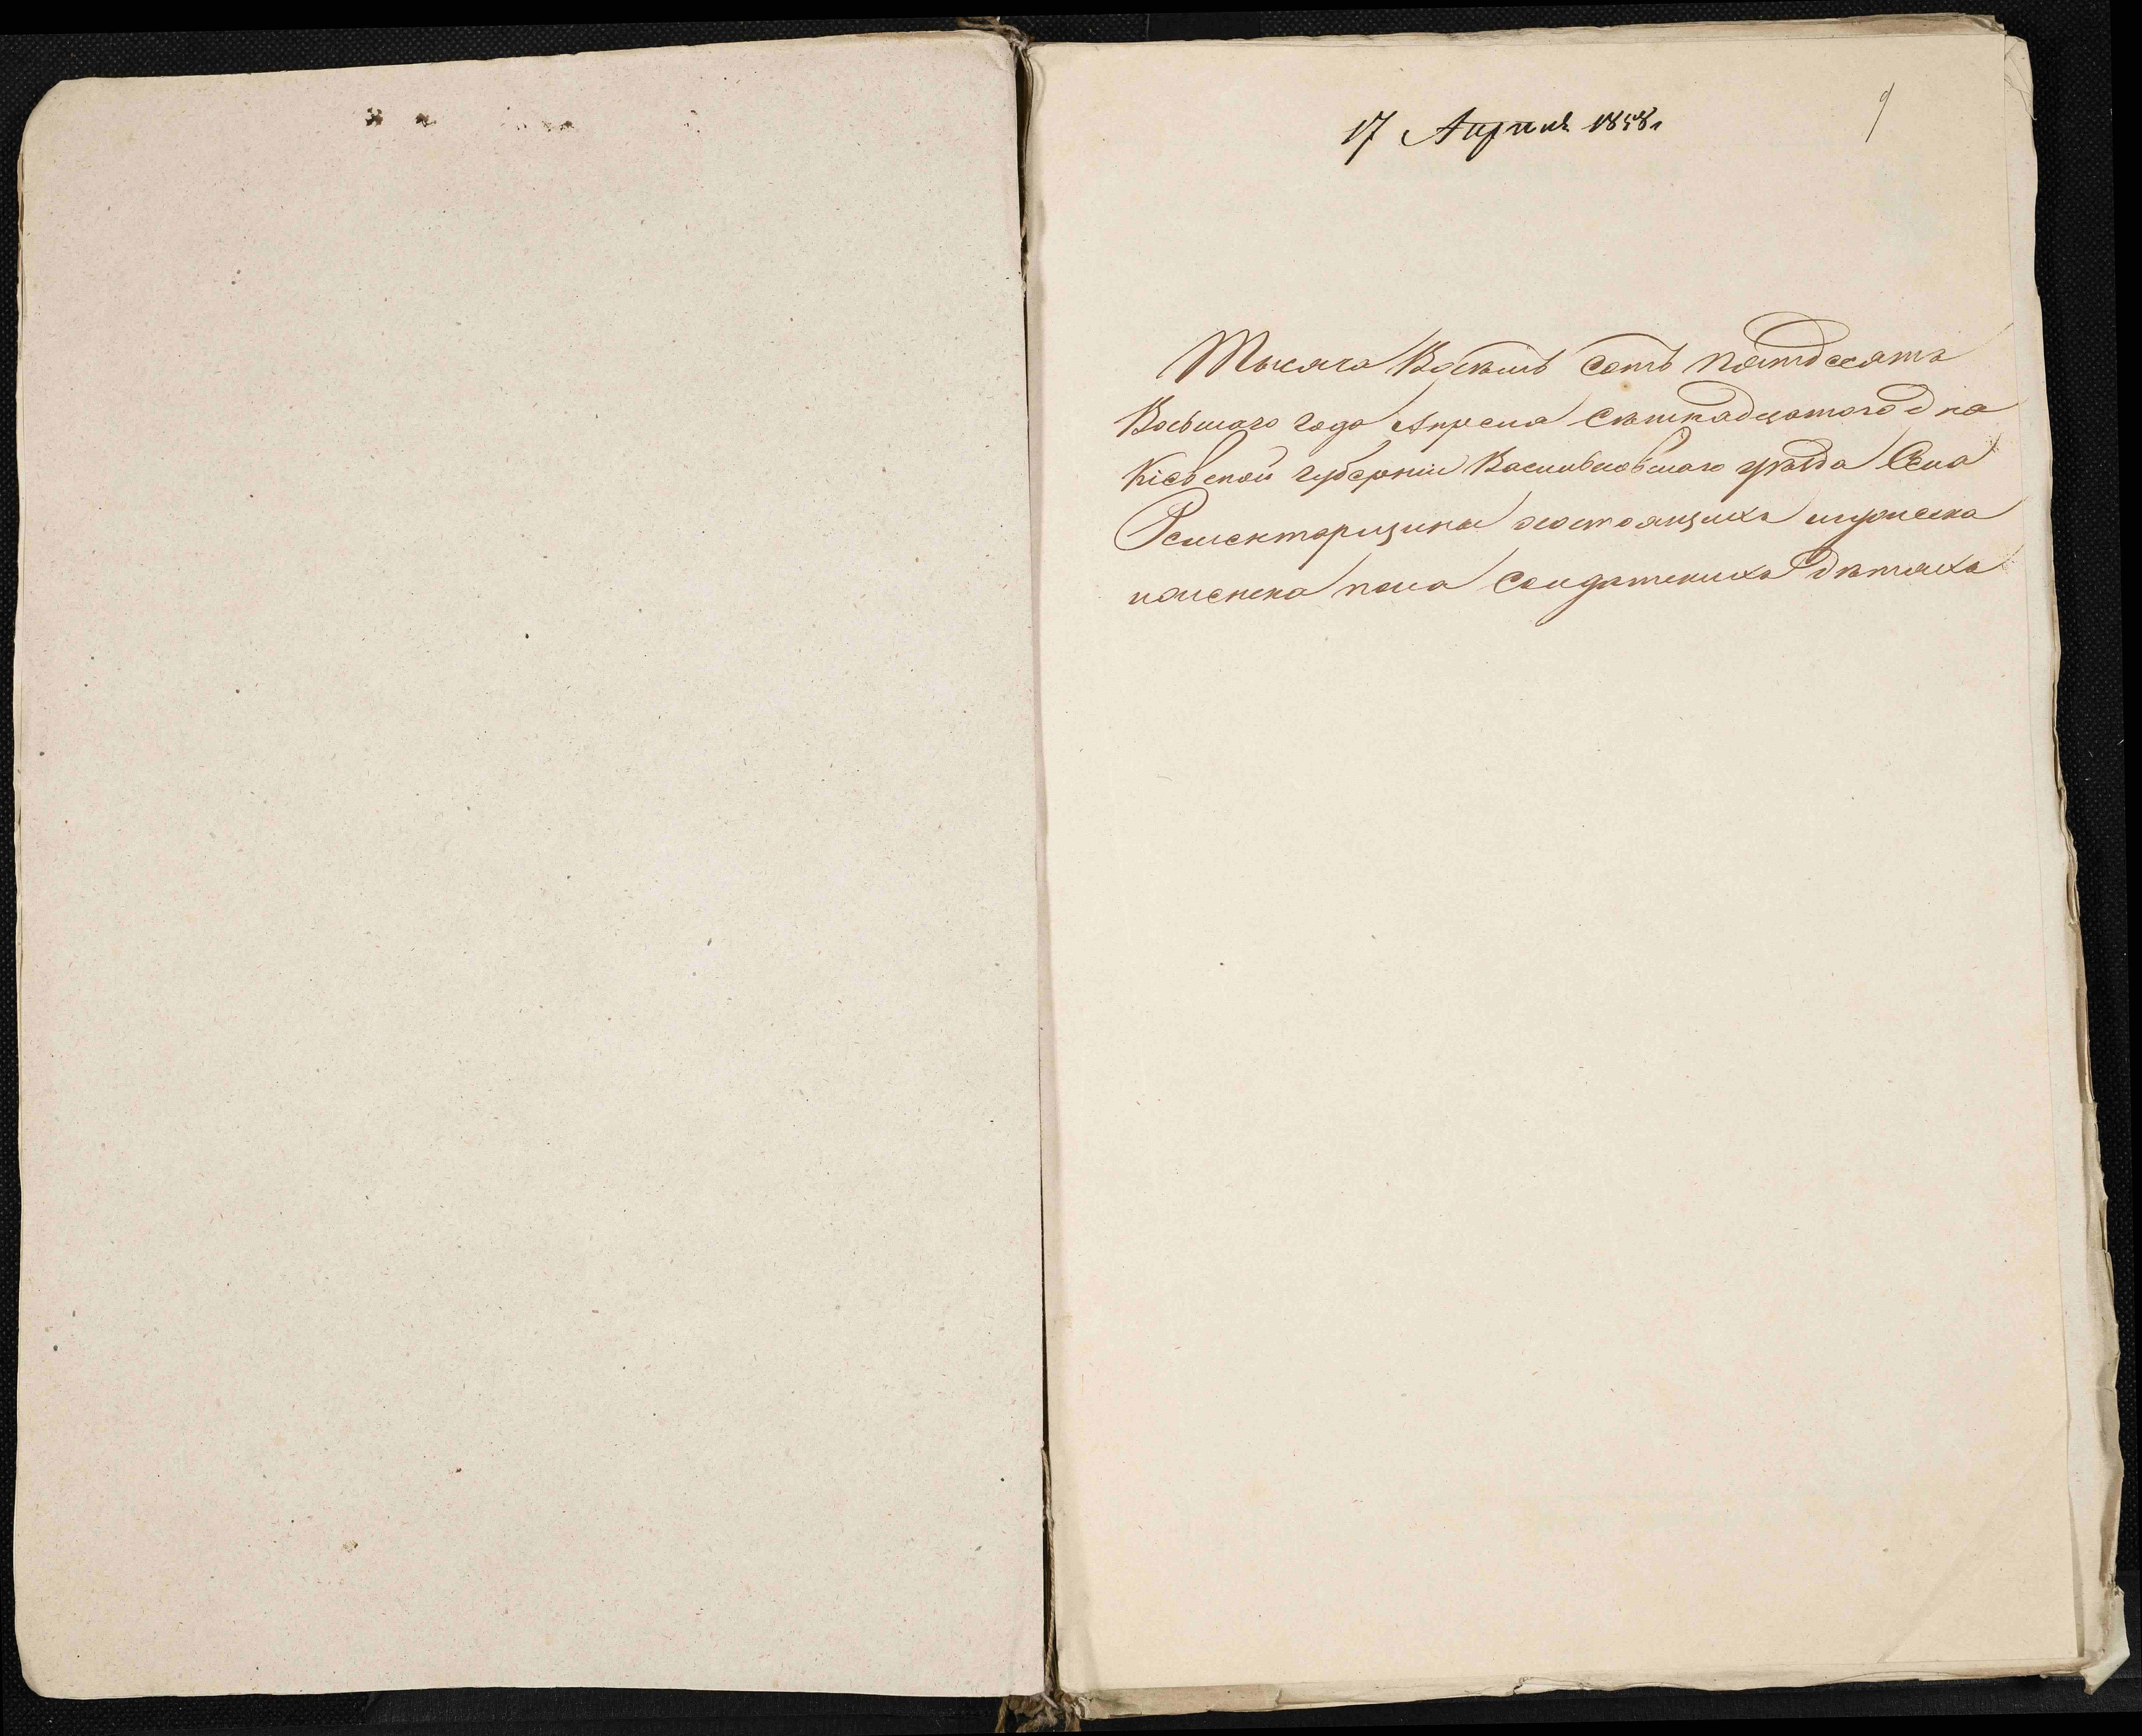 17 Апреля 1858 г
Тысяча Восемь сотъ пятдесятъ
Восьмаго года Апреля Семнадцатого дня
Кіевской губерніи Васильковского уезда Села
Рементарщины состоящихъ мужеска
и женска пола солдатскихъ детяхъ